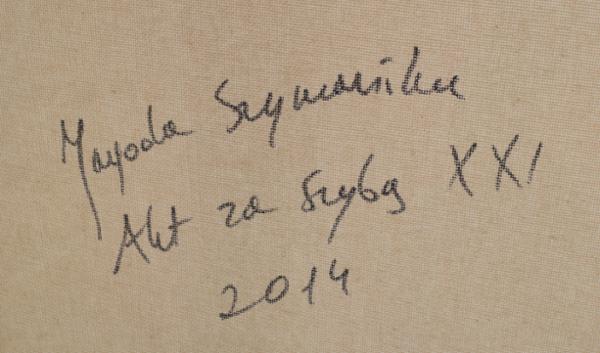 Jagoda Szymańska
Akt za szybą XXI
2014